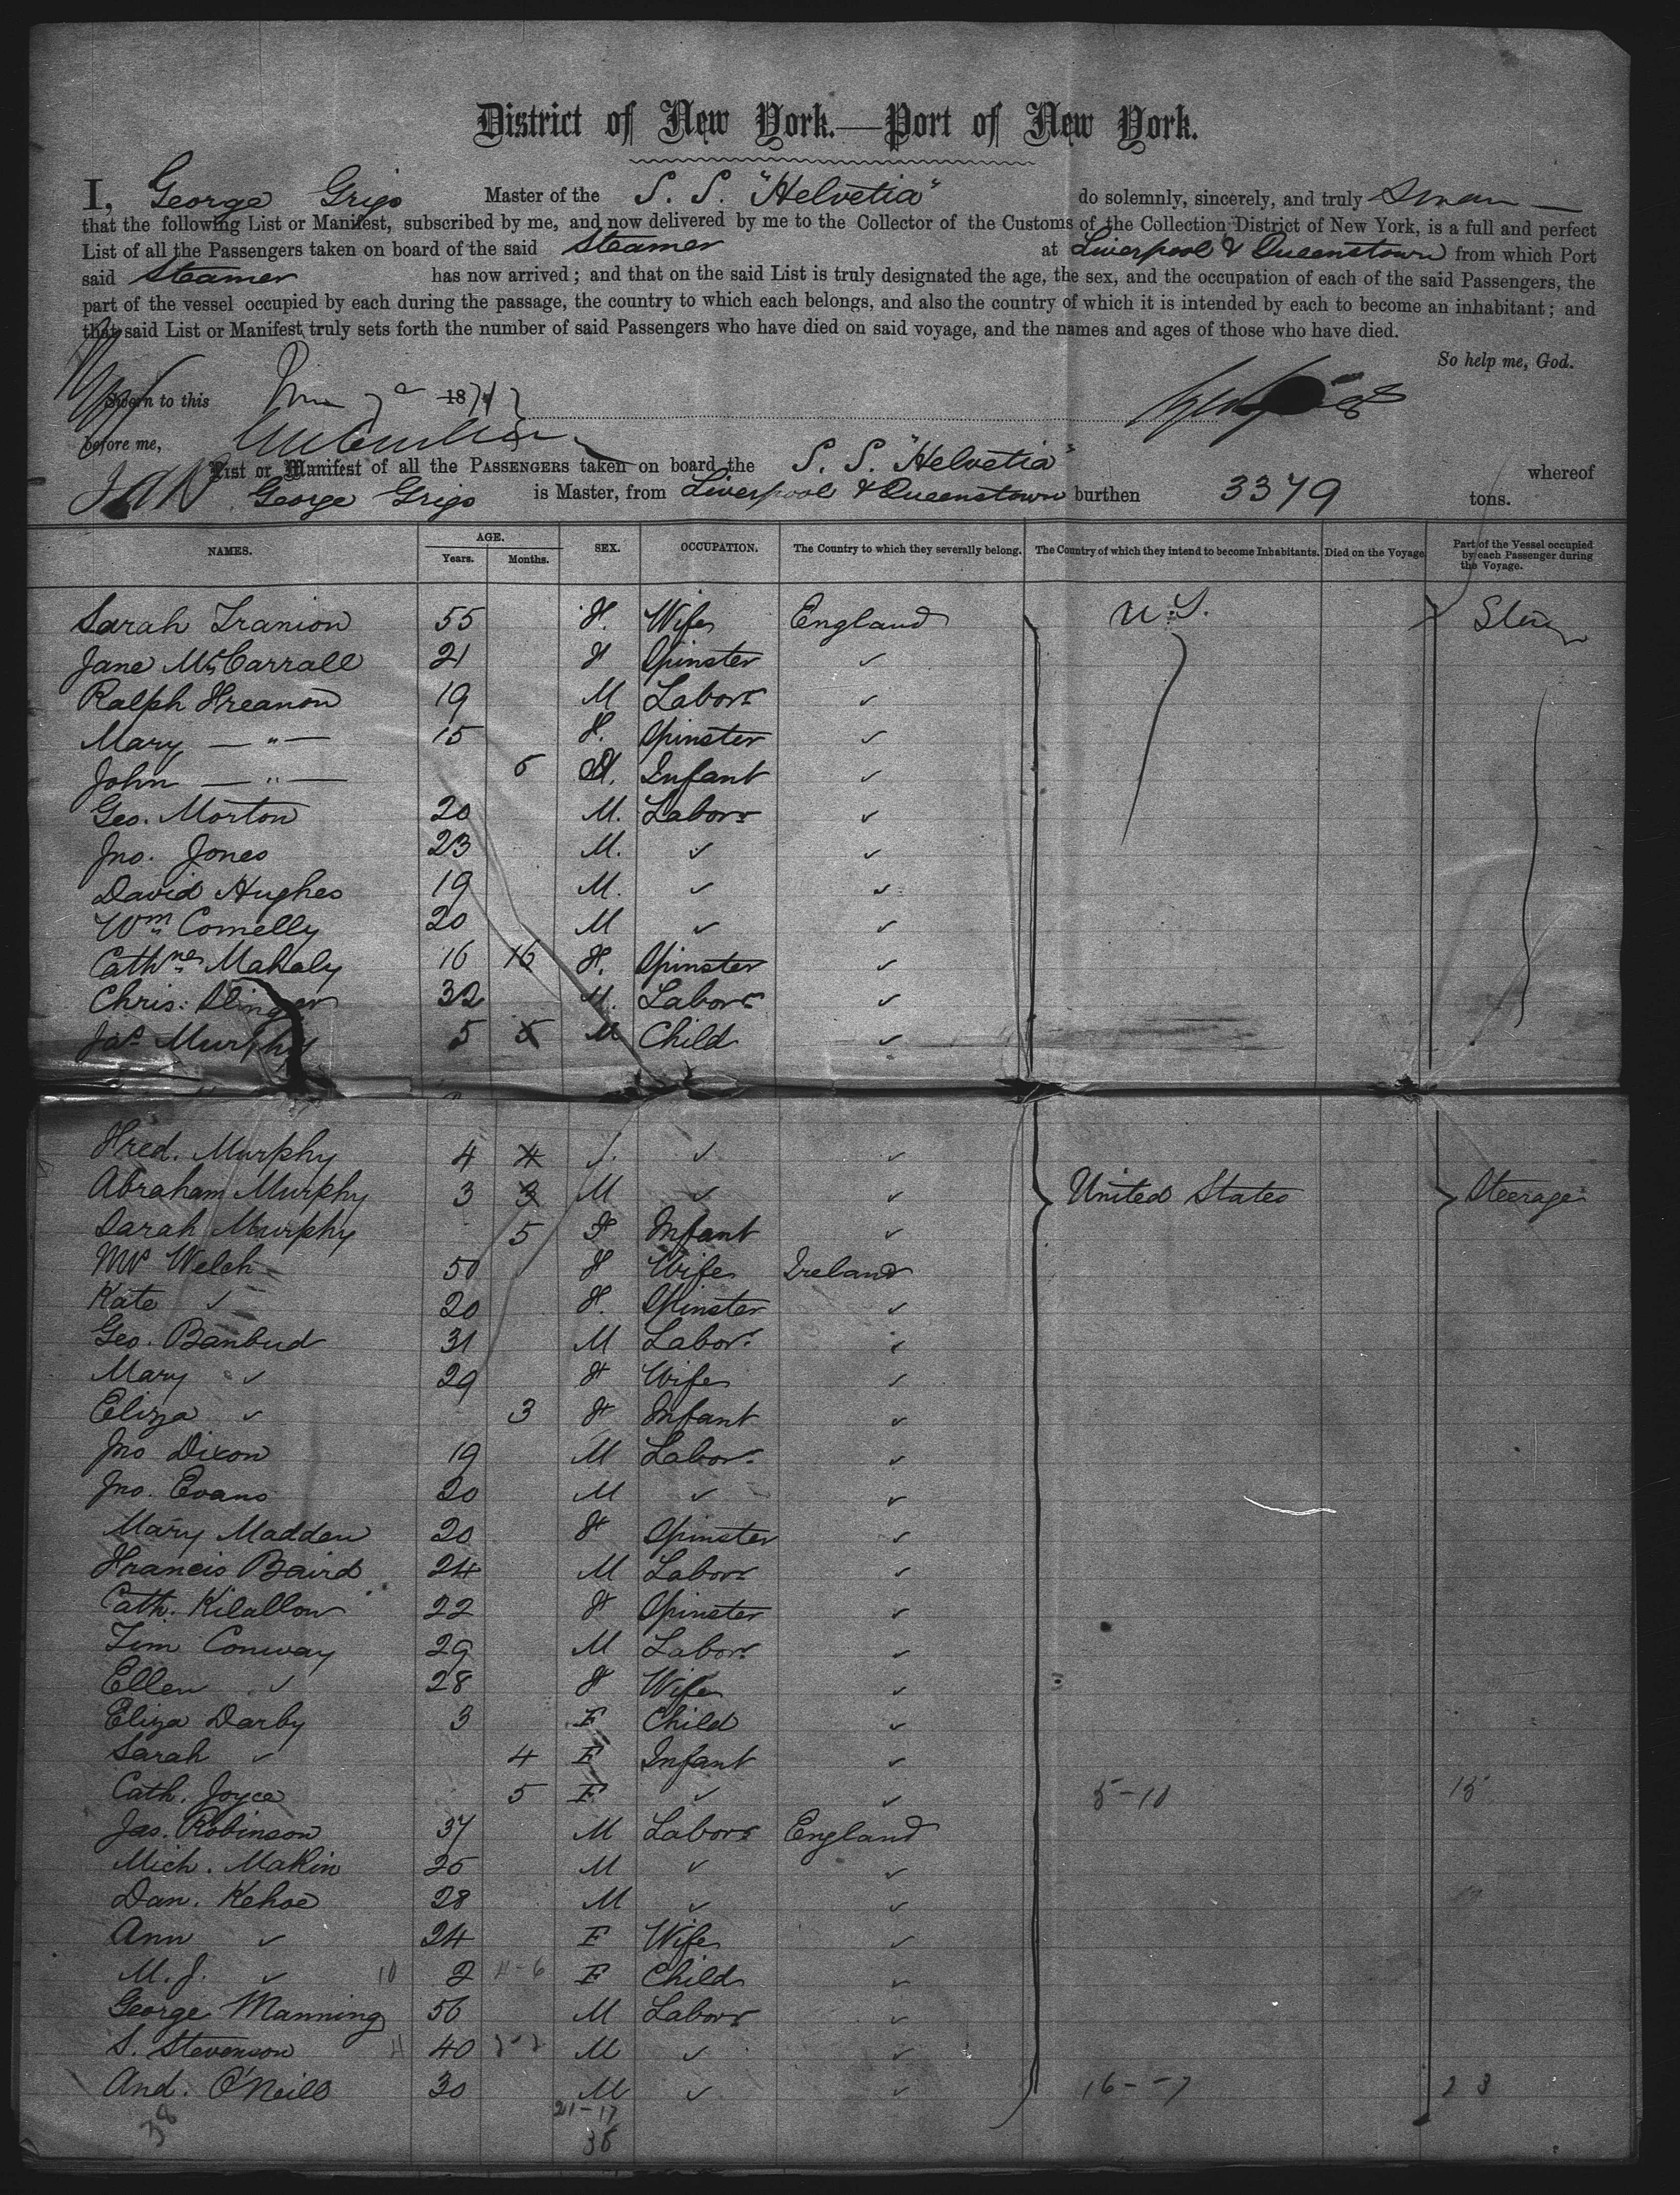 District of New York.—Port of New York.
I, George Grigs Master of the S. S. "Helvetia" do solemnly, sincerely, and truly Swear —
that the following List or Manifest, subscribed by me, and now delivered by me to the Collector of the Customs of the Collection District of New York, is a full and perfect
List of all the Passengers taken on board of the said Steamer at Liverpool & Queenstown from which Port
said Steamer has now arrived; and that on the said List is truly designated the age, the sex, and the occupation of each of the said Passengers, the
part of the vessel occupied by each during the passage, the country to which each belongs, and also the country of which it is intended by each to become an inhabitant; and
that said List or Manifest truly sets forth the number of said Passengers who have died on said voyage, and the names and ages of those who have died.
So help me, God.
Sworn to this 18
before me,
List or Manifest of all the PASSENGERS taken on board the S. S. "Helvetia" whereof
George Grigs is Master, from Liverpool & Queenstown burthen 3379 tons.
NAMES. AGE. Years. Months. SEX. OCCUPATION. The Country to which they severally belong. The Country of which they intend to become Inhabitants. Died on the Voyage. Part of the Vessel occupied by each Passenger during the Voyage.
Sarah Tranion 55 F. Wife England U.S.
Jane McCarrall 21 F Spinster ✓
Ralph Freanon 19 M Labor ✓
Mary — " — 15 F. Spinster ✓
John — " — 6 M. Infant ✓
Geo. Morton 20 M. Labor ✓
Jno. Jones 23 M. ✓ ✓
David Hughes 19 M. ✓ ✓
Wm Comelly 20 M ✓ ✓
Cathne Mahaly 16 16 F. Spinster ✓
Chris: Slinger 32 M. Labor ✓
Jas Murphy 5 5 M Child ✓
Fred. Murphy 4 4 ✓ ✓
Abraham Murphy 3 3 M ✓ ✓ United States Steerage
Sarah Murphy 5 F Infant ✓
Mrs Welch 50 F Wife Ireland
Kate ✓ 20 F. Spinster ✓
Geo. Banbud 31 M Labor ✓
Mary ✓ 29 F Wife ✓
Eliza ✓ 3 F Infant ✓
Jno Dixon 19 M Labor ✓
Jno. Evans 20 M ✓ ✓
Mary Madden 20 F Spinster ✓
Francis Baird 24 M Labor ✓
Cath. Kilallow 22 F Spinster ✓
Tim Conway 29 M Labor ✓
Ellen ✓ 28 F Wife ✓
Eliza Darby 3 F Child ✓
Sarah ✓ 4 F Infant ✓
Cath. Joyce 5 F ✓ ✓ 5-10 15
Jas. Robinson 37 M Labor England
Mich. Makin 25 M ✓ ✓
Dan. Kehoe 28 M ✓ ✓
Ann ✓ 24 F Wife ✓
M. J. ✓ 10 2 4-6 F Child ✓
George Manning 56 M Labor ✓
S. Stevenson 40 M ✓ ✓
And. O'Neill 30 M ✓ ✓ 16--7 23
38 21-17
38